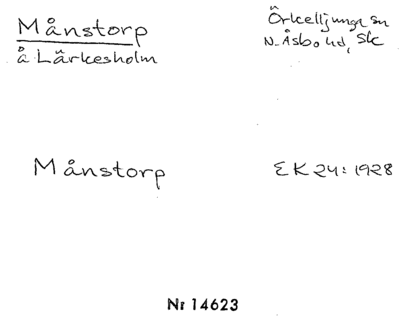 Månstorp
å Lärkesholm
Örkelljunga sn
N. Åsbo hd, Sk
Månstorp
EK 24: 1928
Nr 14623